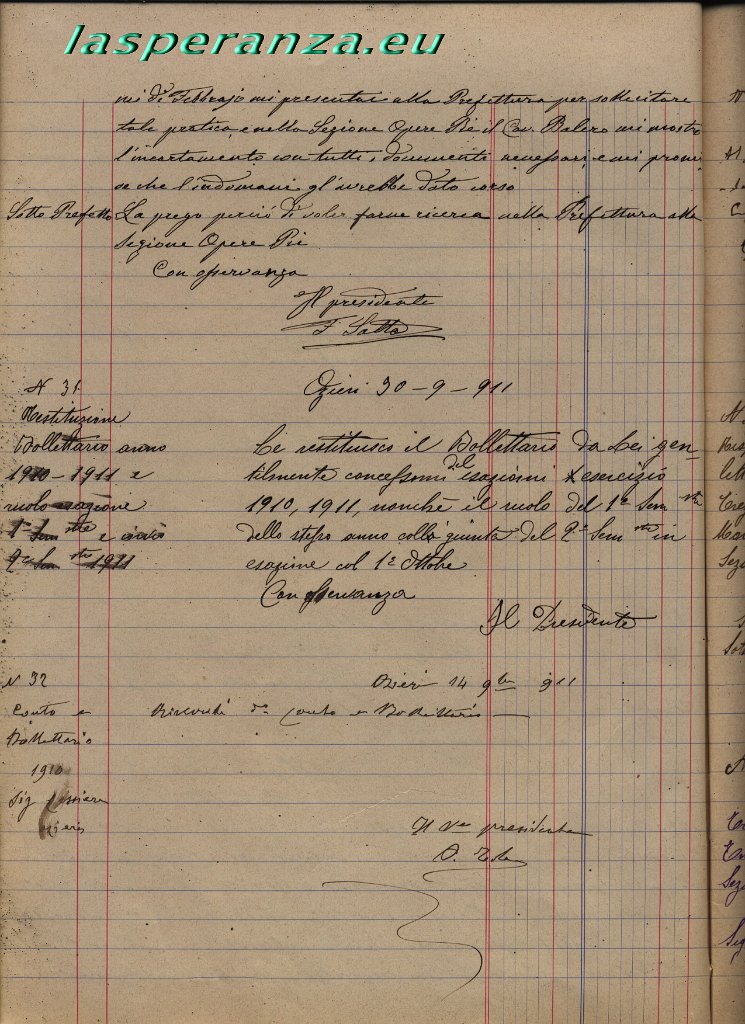 lasperanza.eu
mi di Febbrajo mi presentai alla Prefettura per sollecitare
tale pratica, e nella Sezione Opere Pie il Cav. Balero mi mostrò
l'incartamento con tutti i documenti necessari, e mi promi
se che l'indomani gl'avrebbe dato corso
Sotto Prefetto La prego perciò di voler farne ricerca nella Prefettura alla
Sezione Opere Pie
Con osservanza
Il presidente
F Satta
N 31 Ozieri 30-9-911
Restituzione
Bollettario anno Le restituisco il Bollettario da Lei gen
1910-1911 e tilmente concessomi del esercizio
ruolo esazione 1910, 1911, nonchè il ruolo del 1º Sem stre
1º Sem stre e dello stesso anno colla giunta del 2º Sem stre in
2º Sem stre 1911 esazione col 1º Ottobre
Con osservanza
Il Presidente
N 32 Ozieri 14 9bre 911
Conto e conto e Bollettario
Bollettario
1910
Sig
Il Ve presidente